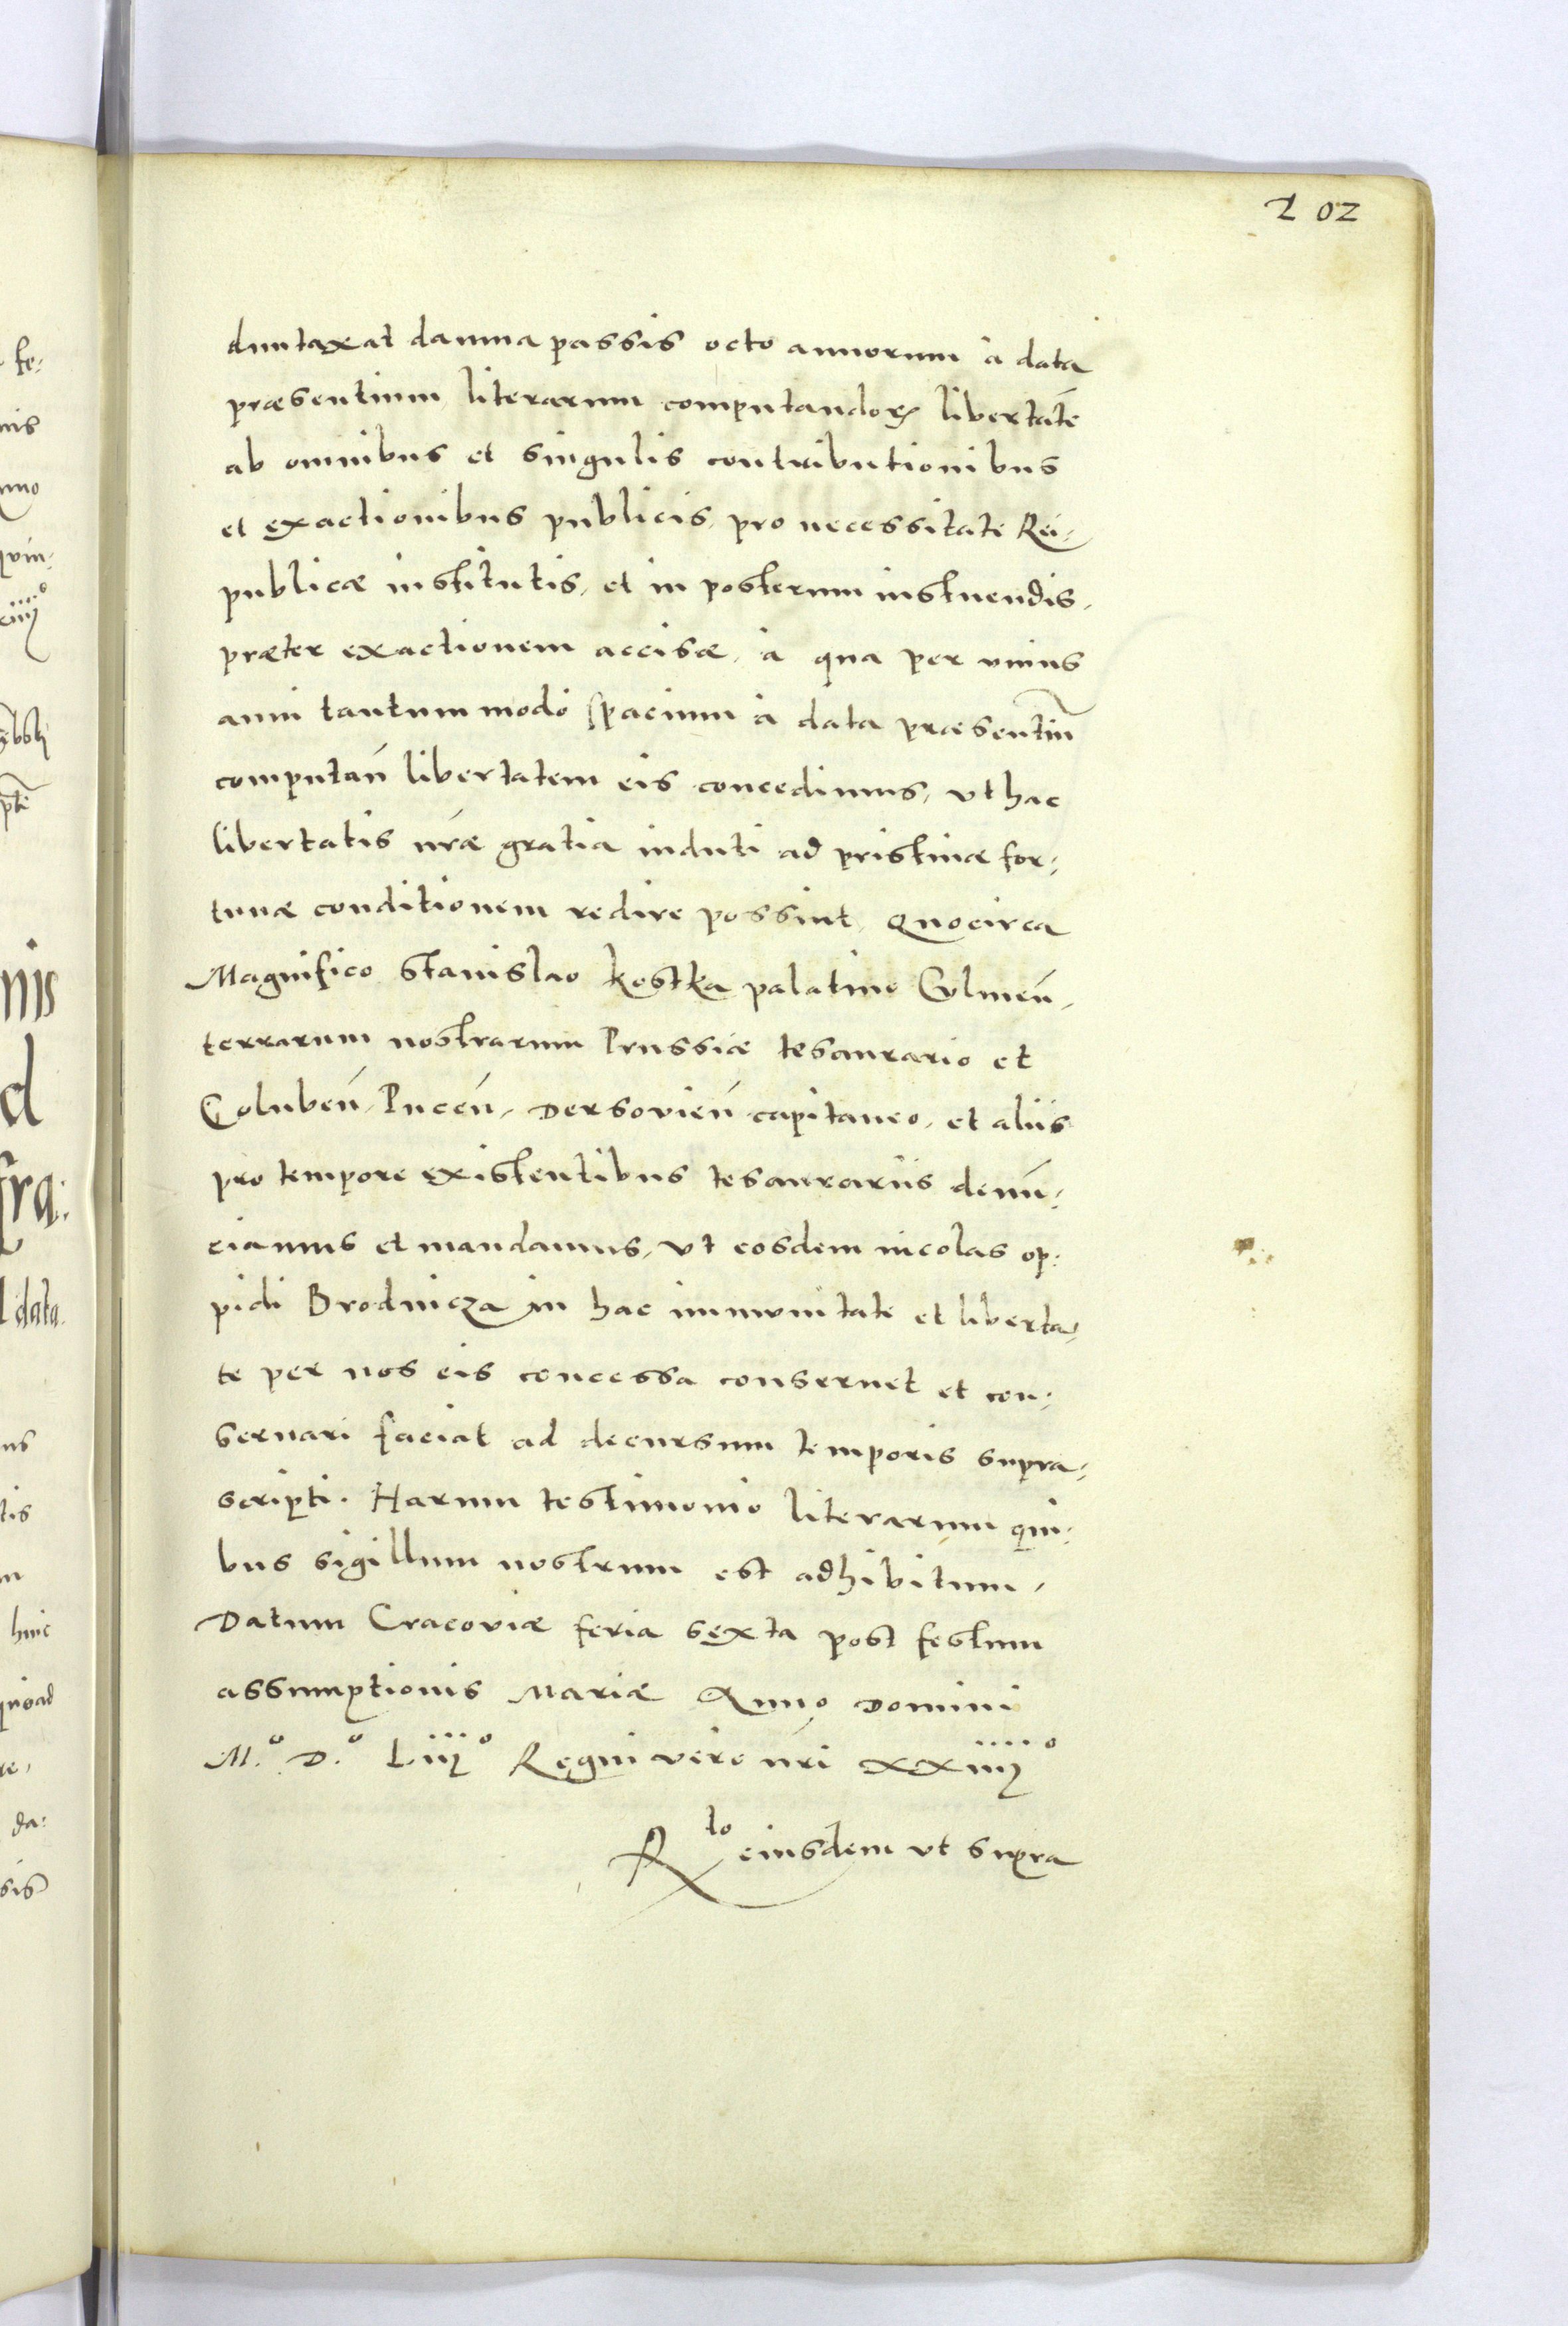 202
duntaxat damna passis octo annorum à data
præsentium literarum computandoꝝ libertatē
ab omnibus et singulis contributionibus
et exactionibus publicis, pro necessitate Rei-
publicæ institutis, et in posterum instuendis,
præter exactionem accisæ, à qua per unius
anni tantummodo spacium à data præsentiū
computań libertatem eis concedimus, vt hac
libertatis nr̃æ gratia induti ad pristinæ for-
tunæ conditionem redire possint, Quocirca
Magnifico Stanislao Kostka palatino Culmeń,
terrarum nostrarum Prussiæ tesaurario et
Golubeń, Puceń, Dersovień capitaneo, et aliis
pro tempore existentibus tesaurariis denū-
ciamus et mandamus, vt eosdem incolas op-
pidi Brodnicza in hac immunitate et liberta-
te per nos eis concessa conseruet et con-
seruari faciat ad decursum temporis supra-
scripti. Harum testimonio literarum qui-
bus sigillum nostrum est adhibitum,
Datum Cracoviæ feria sexta post festum
assumptionis Mariæ Anno Domini
M.º D.º Liijº Regni vero nr̃i xxiiijº
Rło eiusdem vt supra
fe-
nis
huic
quoad
data.
da-
sis